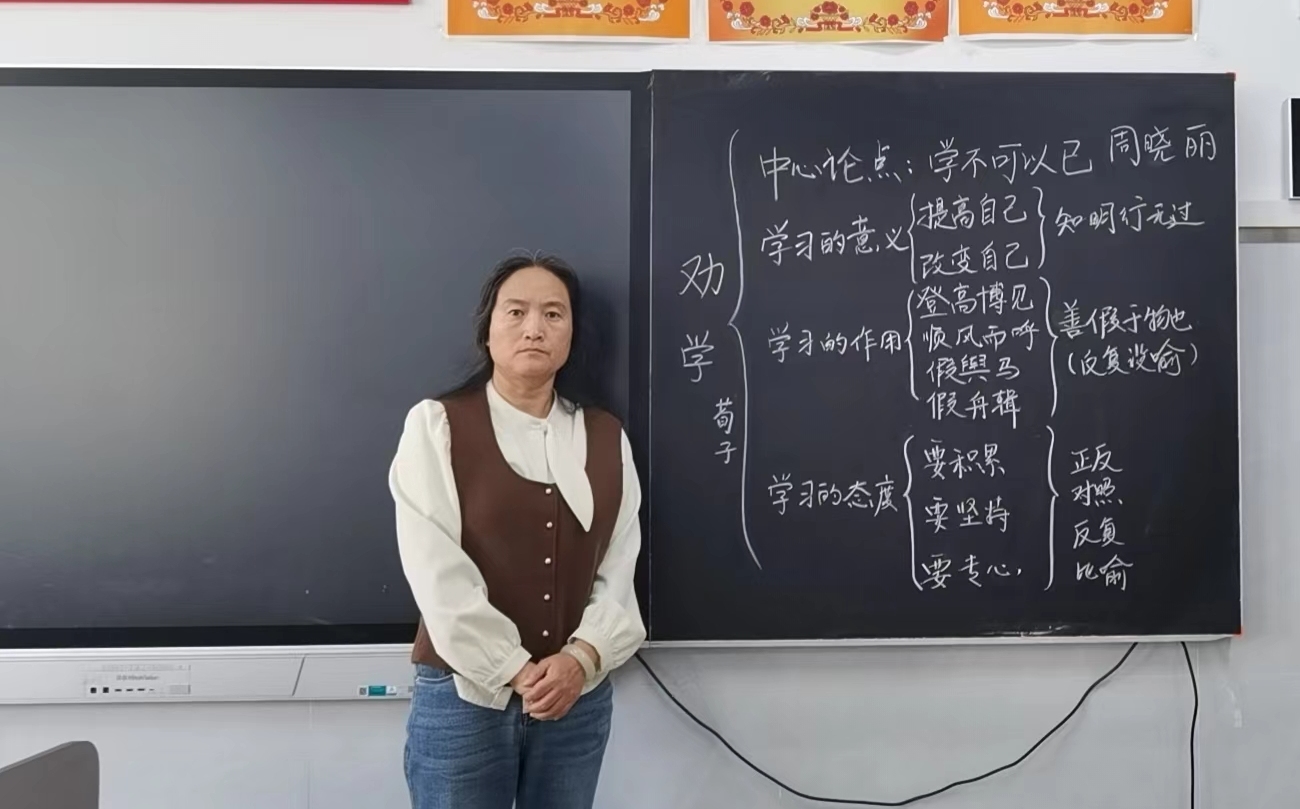 劝学
荀子
中心论点：学不可以已 周晓丽
学习的意义
提高自己
改变自己
知明行无过
学习的作用
登高博见
顺风而呼
假輿马
假舟辑
善假于物也
（反复设喻）
学习的态度
要积累
要坚持
要专心，
正反
对照
反复
比喻